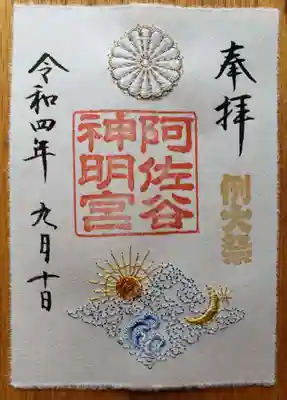 奉拝
例大祭
阿佐谷
神明宮
令和四年 九月十日